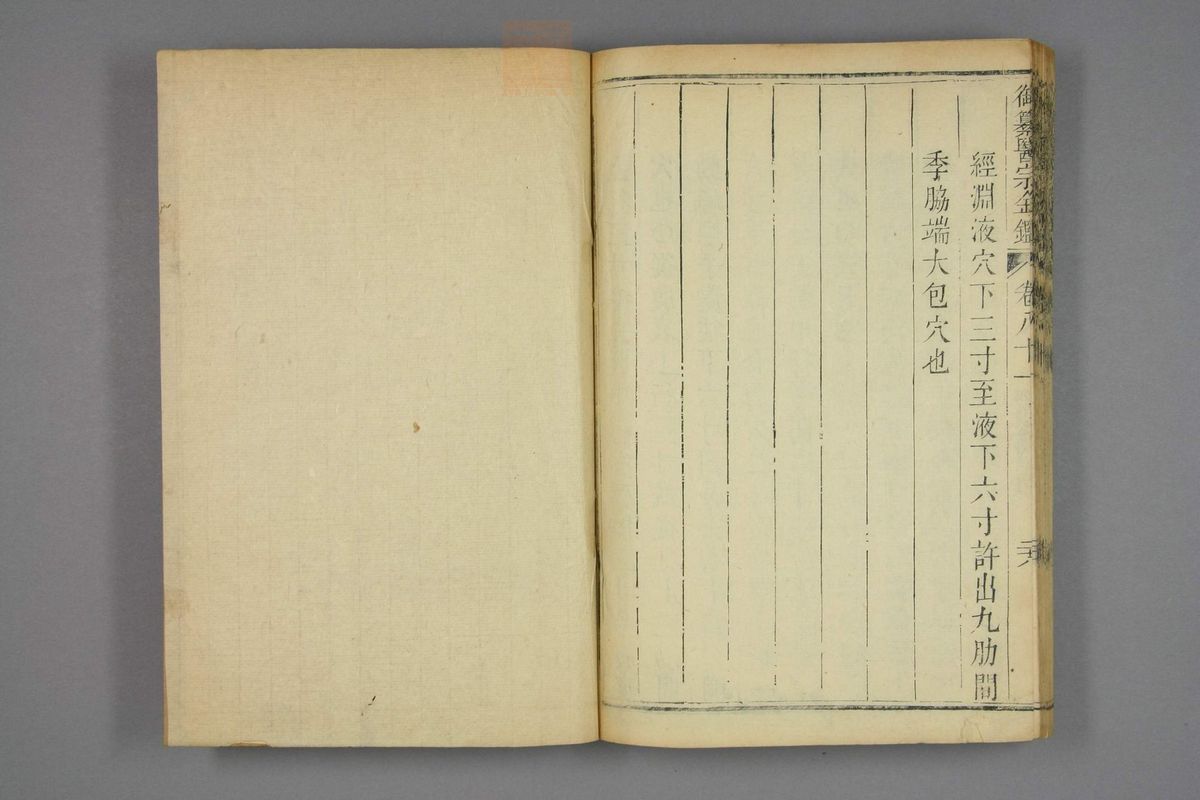 御纂醫宗金鑑 卷八十一 二六
經淵液穴下三寸至液下六寸許出九肋間
季脇端大包穴也